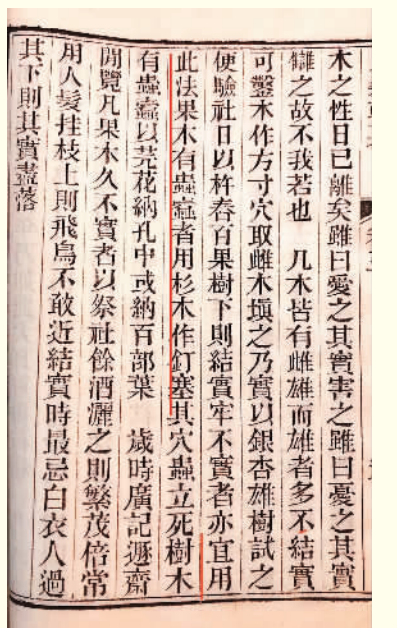 木之性日已離矣雖曰愛之其實害之雖曰憂之其實
讎之故不我若也　凡木皆有雌雄而雄者多不結實
可鑿木作方寸穴取雌木塡之乃實以銀杏雄樹試之
便驗社日以杵舂百果樹下則結實牢不實者亦宜用
此法果木有蟲蠹者用杉木作釘塞其穴蟲立死樹木
有蟲蠹以芫花納孔中或納百部葉　歲時廣記遯齋
閒覽凡果木久不實者以祭社餘酒灑之則繁茂倍常
用人髮挂枝上則飛鳥不敢近結實時最忌白衣人過
其下則其實盡落